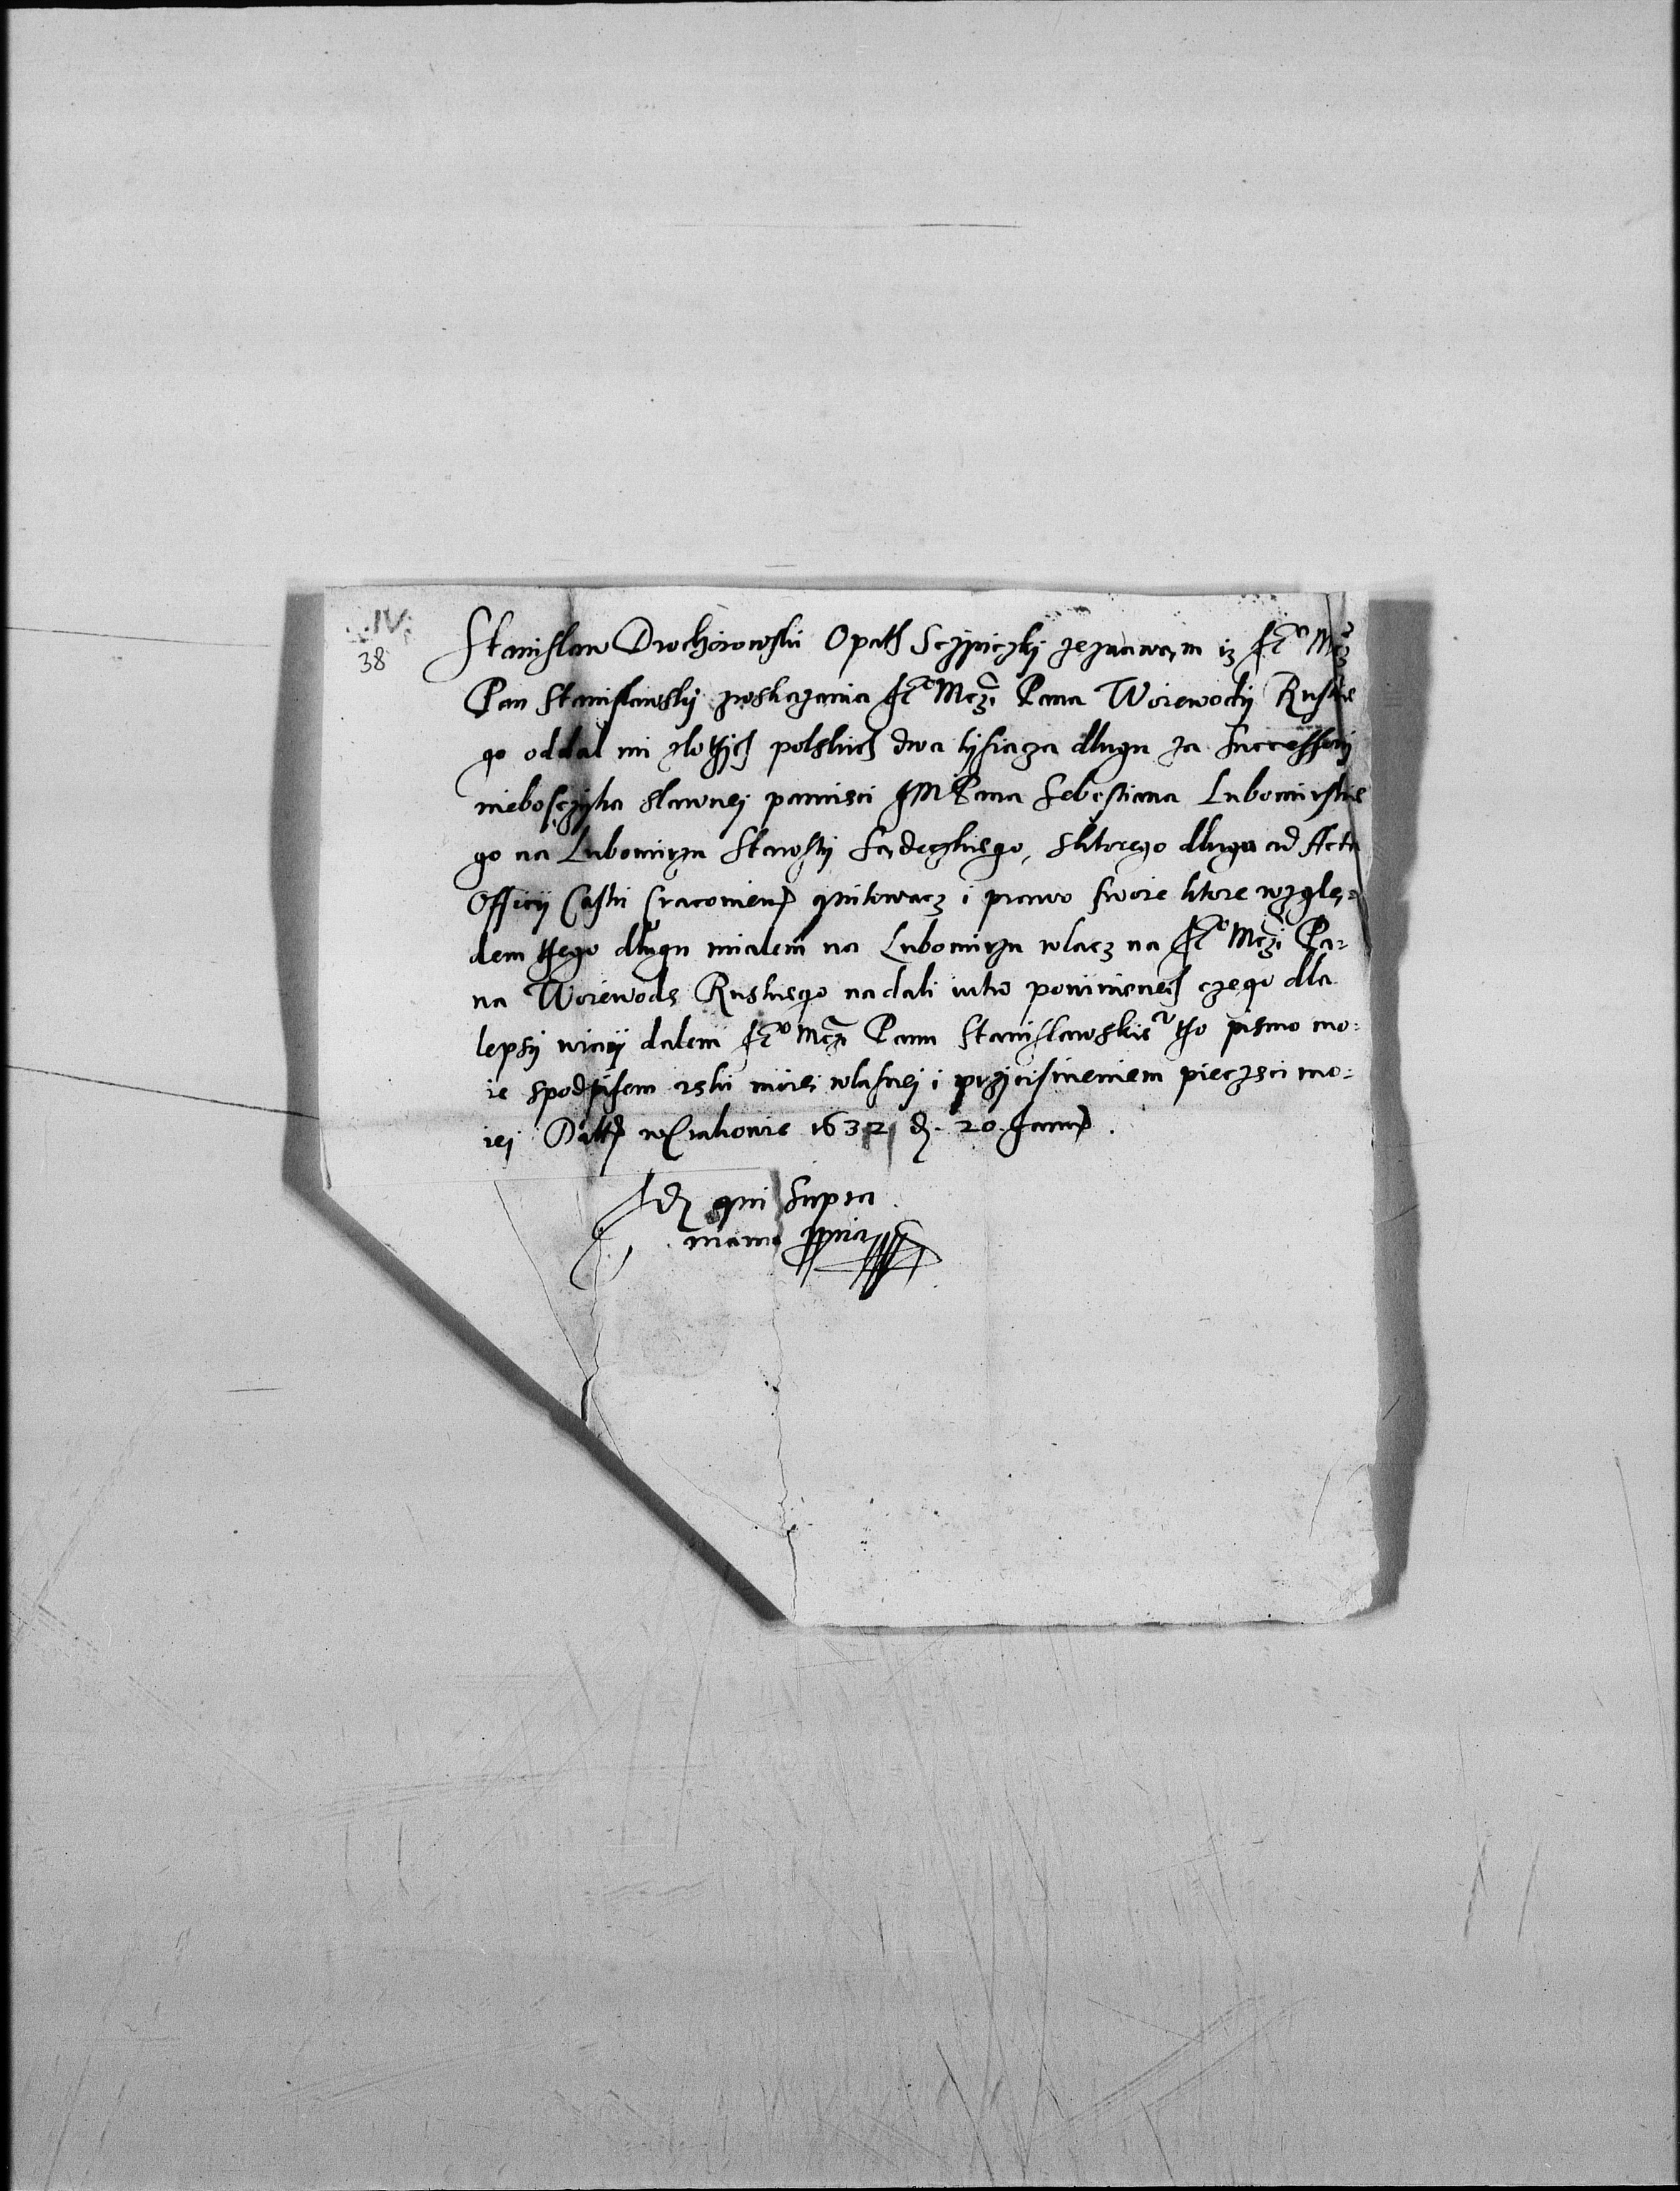 IV.
38
Stanisław Drochoiowski Opath Sczyriczky zeznawam iz Je° Mcz
Pan Stanisławsky zroskazania Je° Mczi Pana Woiewody Ruskie
go oddał mi złothych polskich dwa tysiacza długu za Successorij
nieboszczyka sławnei pamieci JM Pana Sebestiana Lubomirskie
go na Lubomirzu Starosty Sądeczkiego, sktorego długu ad Acta
Officij Castri Cracouien quitowacz i prawo swoie ktore wzglę=
dem thego długu miałem na Lubomirzu wlacz na Je° Mczi Pa=
na Woiewode Ruskiego nadali iutro powinienech czego dla
lepsy wiary dałem Je° Mczi Panu Stanisławskie° tho pismo mo=
ie spodpisem reki moiei własnei i przycisnieniem pieczeci mo=
iei Datt w Crakowie 1632 d. 20. Janu.
Id qui supra
manu ppria